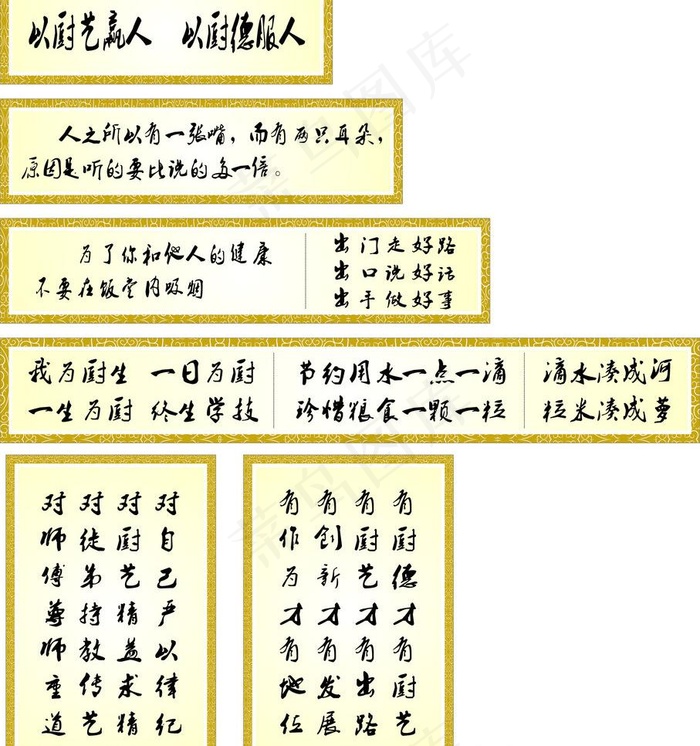 以厨艺赢人 以厨德服人
人之所以有一张嘴，而有两只耳朵，
原因是听的要比说的多一倍。
为了你和他人的健康
不要在饭堂内吸烟
出门走好路
出口说好话
出手做好事
我为厨生 一日为厨
一生为厨 终生学技
节约用水一点一滴
珍惜粮食一颗一粒
滴水凑成河
粒米凑成萝
对自己严以律纪
对厨艺精益求精
对徒弟持教传艺
对师傅尊师重道
有厨德才有厨艺
有厨艺才有出路
有创新才有发展
有作为才有地位
菜鸟图库